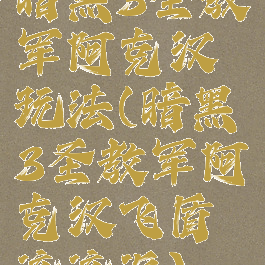 暗黑3圣教
军阿克汉
玩法(暗黑
3圣教军阿
克汉飞盾
流流派)